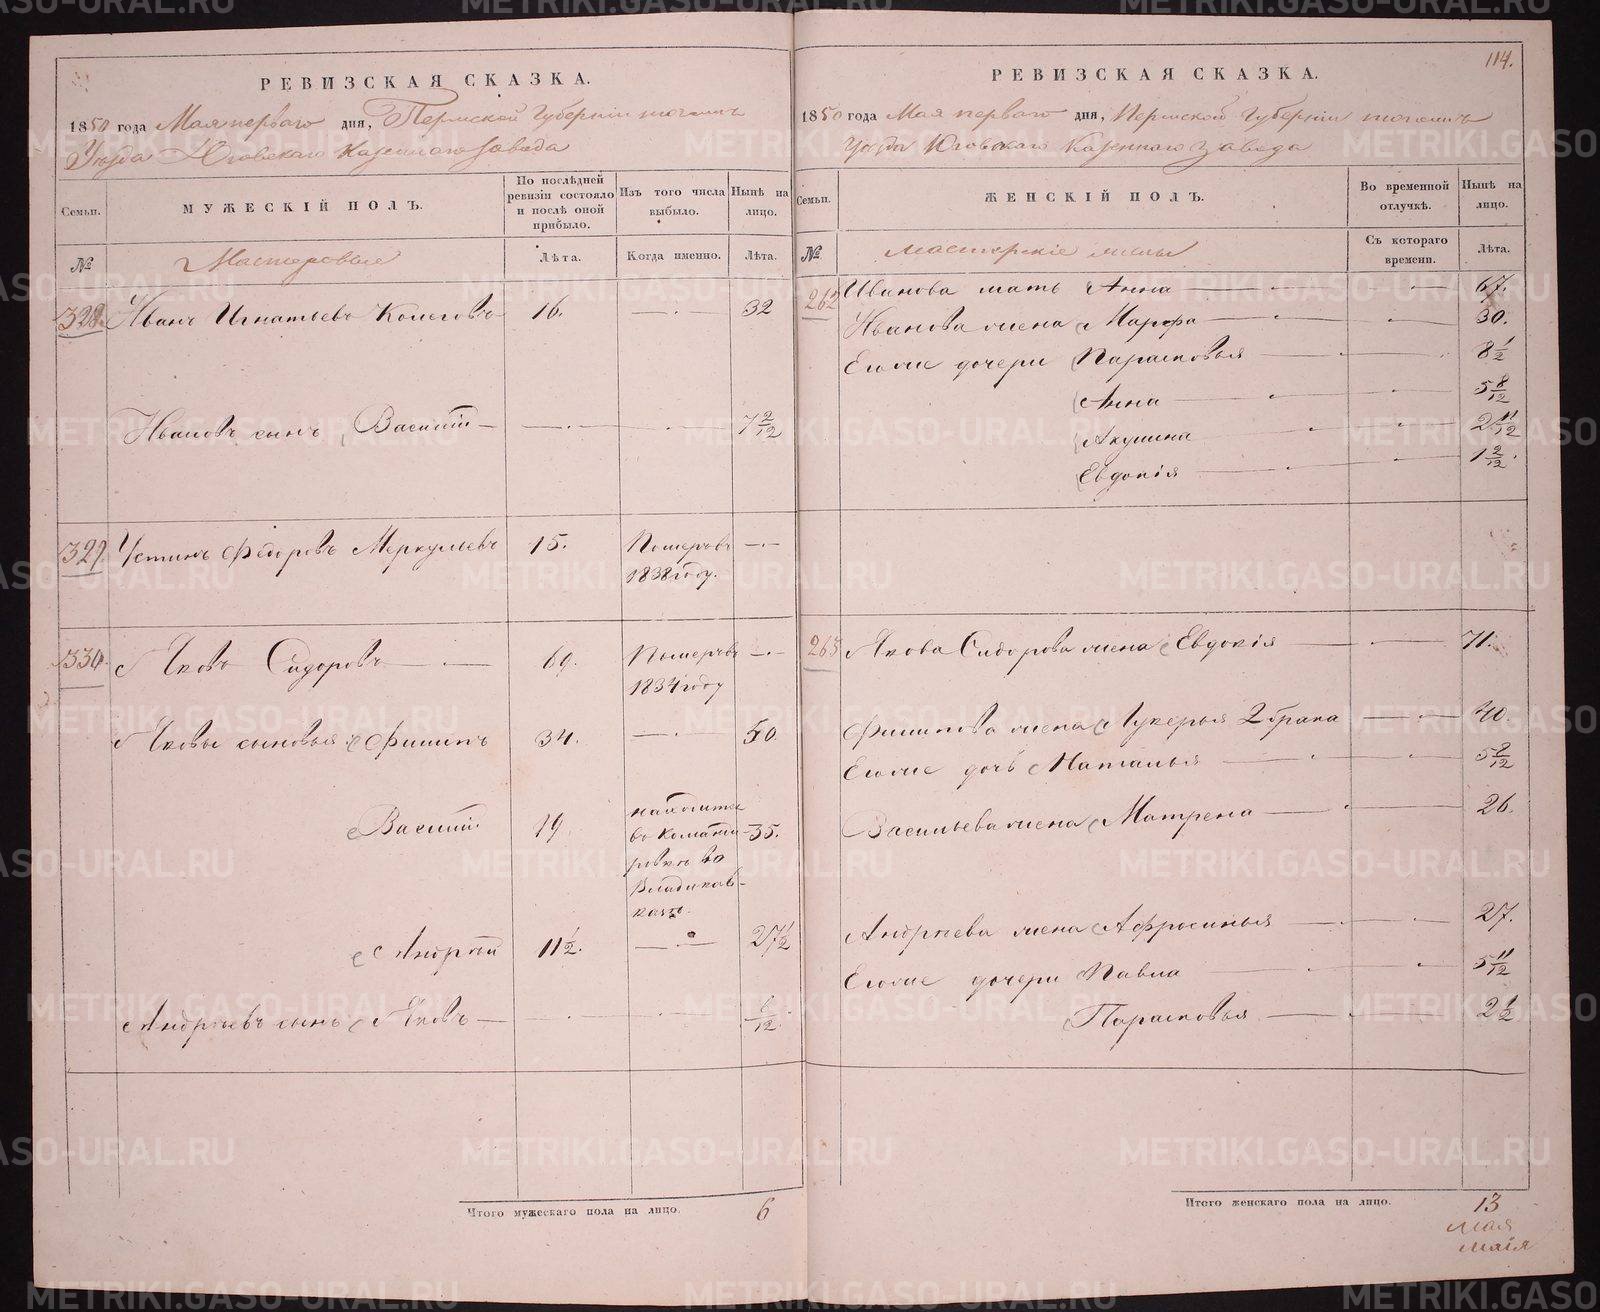 РЕВИЗСКАЯ СКАЗКА.
1850 года Мая перваго дня, Пермской Губернии тогожъ
Уезда Юговскаго Казеннаго завода
Семьи.
МУЖЕСКІЙ ПОЛЪ.
По послѣдней ревизіи состояло и послѣ оной прибыло.
Изъ того числа выбыло.
Нынѣ на лицо.
№
Мастеровые
Лѣта.
Когда именно.
Лѣта.
328. Иванъ Игнатьевъ 16. 32
Ивановъ сынъ Василій 7 2/12
329. Устинъ Федоровъ Меркульевъ 15. Померъ въ
1838 году.
330. Яковъ Сидоровъ 69. Померъ въ
1834 году
Яковы сыновья Филипъ 34. 50.
Василій 19. находится
въ команди- 35.
ровке во
Владикав-
казе.
Андрей 11 1/2. 27 1/2
Андреевъ сынъ Яковъ
Итого мужескаго пола на лицо. 6
114.
РЕВИЗСКАЯ СКАЗКА.
1850 года Мая перваго дня, Пермской Губернии тогожъ
Уезда Юговскаго Казеннаго завода
Семьи.
ЖЕНСКІЙ ПОЛЪ.
Во временной отлучкѣ.
Нынѣ на лицо.
№
Мастерские жены
Съ котораго времени.
Лѣта.
262 Иванова мать Анна 67.
Иванова жена Марфа 30.
Егоже дочери Парасковья 8 1/2
Анна 5 8/12
Акулина 2 11/12
Евдокія 1 2/12.
263 Якова Сидорова жена Евдокія 71.
Филипова жена Лукерья 2 брака 40.
Егоже дочь Наталья 5 8/12
Васильева жена Матрена 26.
Андреева жена Афросинья 27.
Егоже дочери Павла 5 11/12
Парасковья 2 1/2
Итого женскаго пола на лицо. 13
Мая
Маія
METRIKI.GASO-URAL.RU